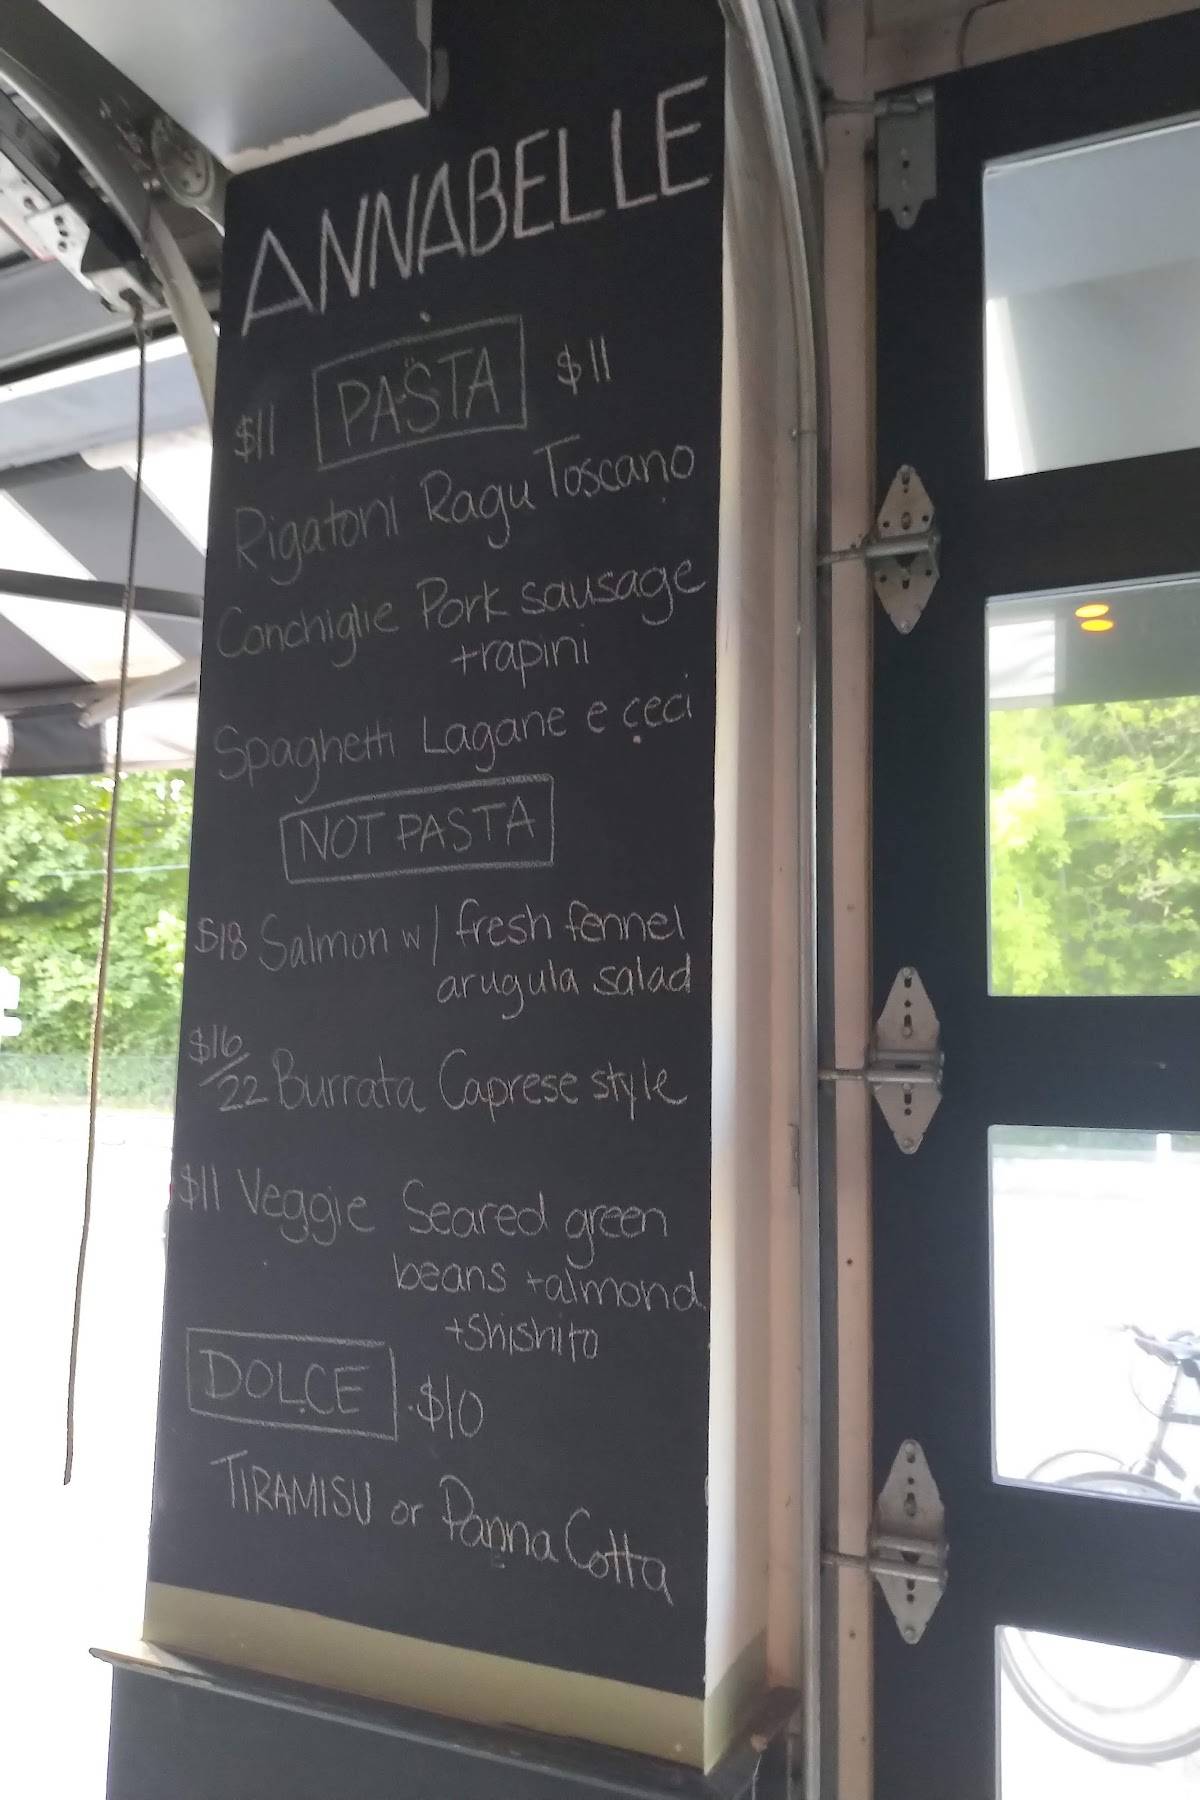 ANNABELLE
$11 PASTA $11
Rigatoni Ragu Toscano
Conchiglie Pork sausage
+rapini
Spaghetti Lagane e ceci
NOT PASTA
$18 Salmon w/ fresh fennel
arugula salad
$16/22 Burrata Caprese style
$11 Veggie Seared green
beans +almond
+shishito
DOLCE .$10
TIRAMISU or Panna Cotta